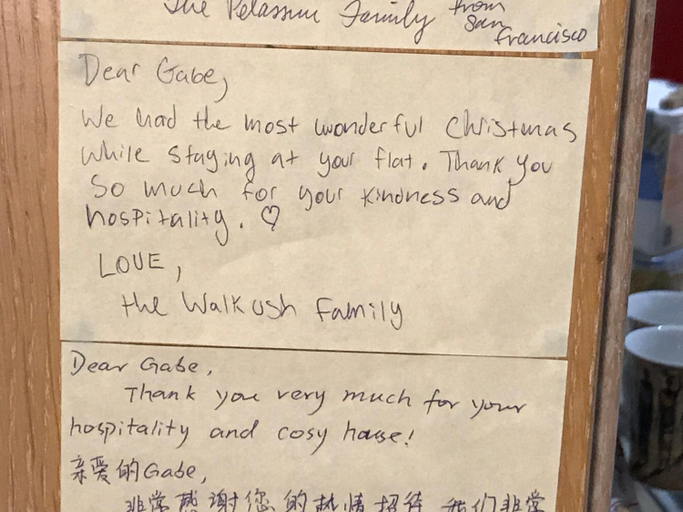 The Pelassum Family from
San
francisco
Dear Gabe,
We had the most wonderful Christmas
while staying at your flat. Thank you
so much for your kindness and
hospitality. ♡
LOVE,
the Walkush Family
Dear Gabe,
Thank you very much for your
hospitality and cosy house!
亲爱的Gabe,
非常感谢您的热情招待 我们非常